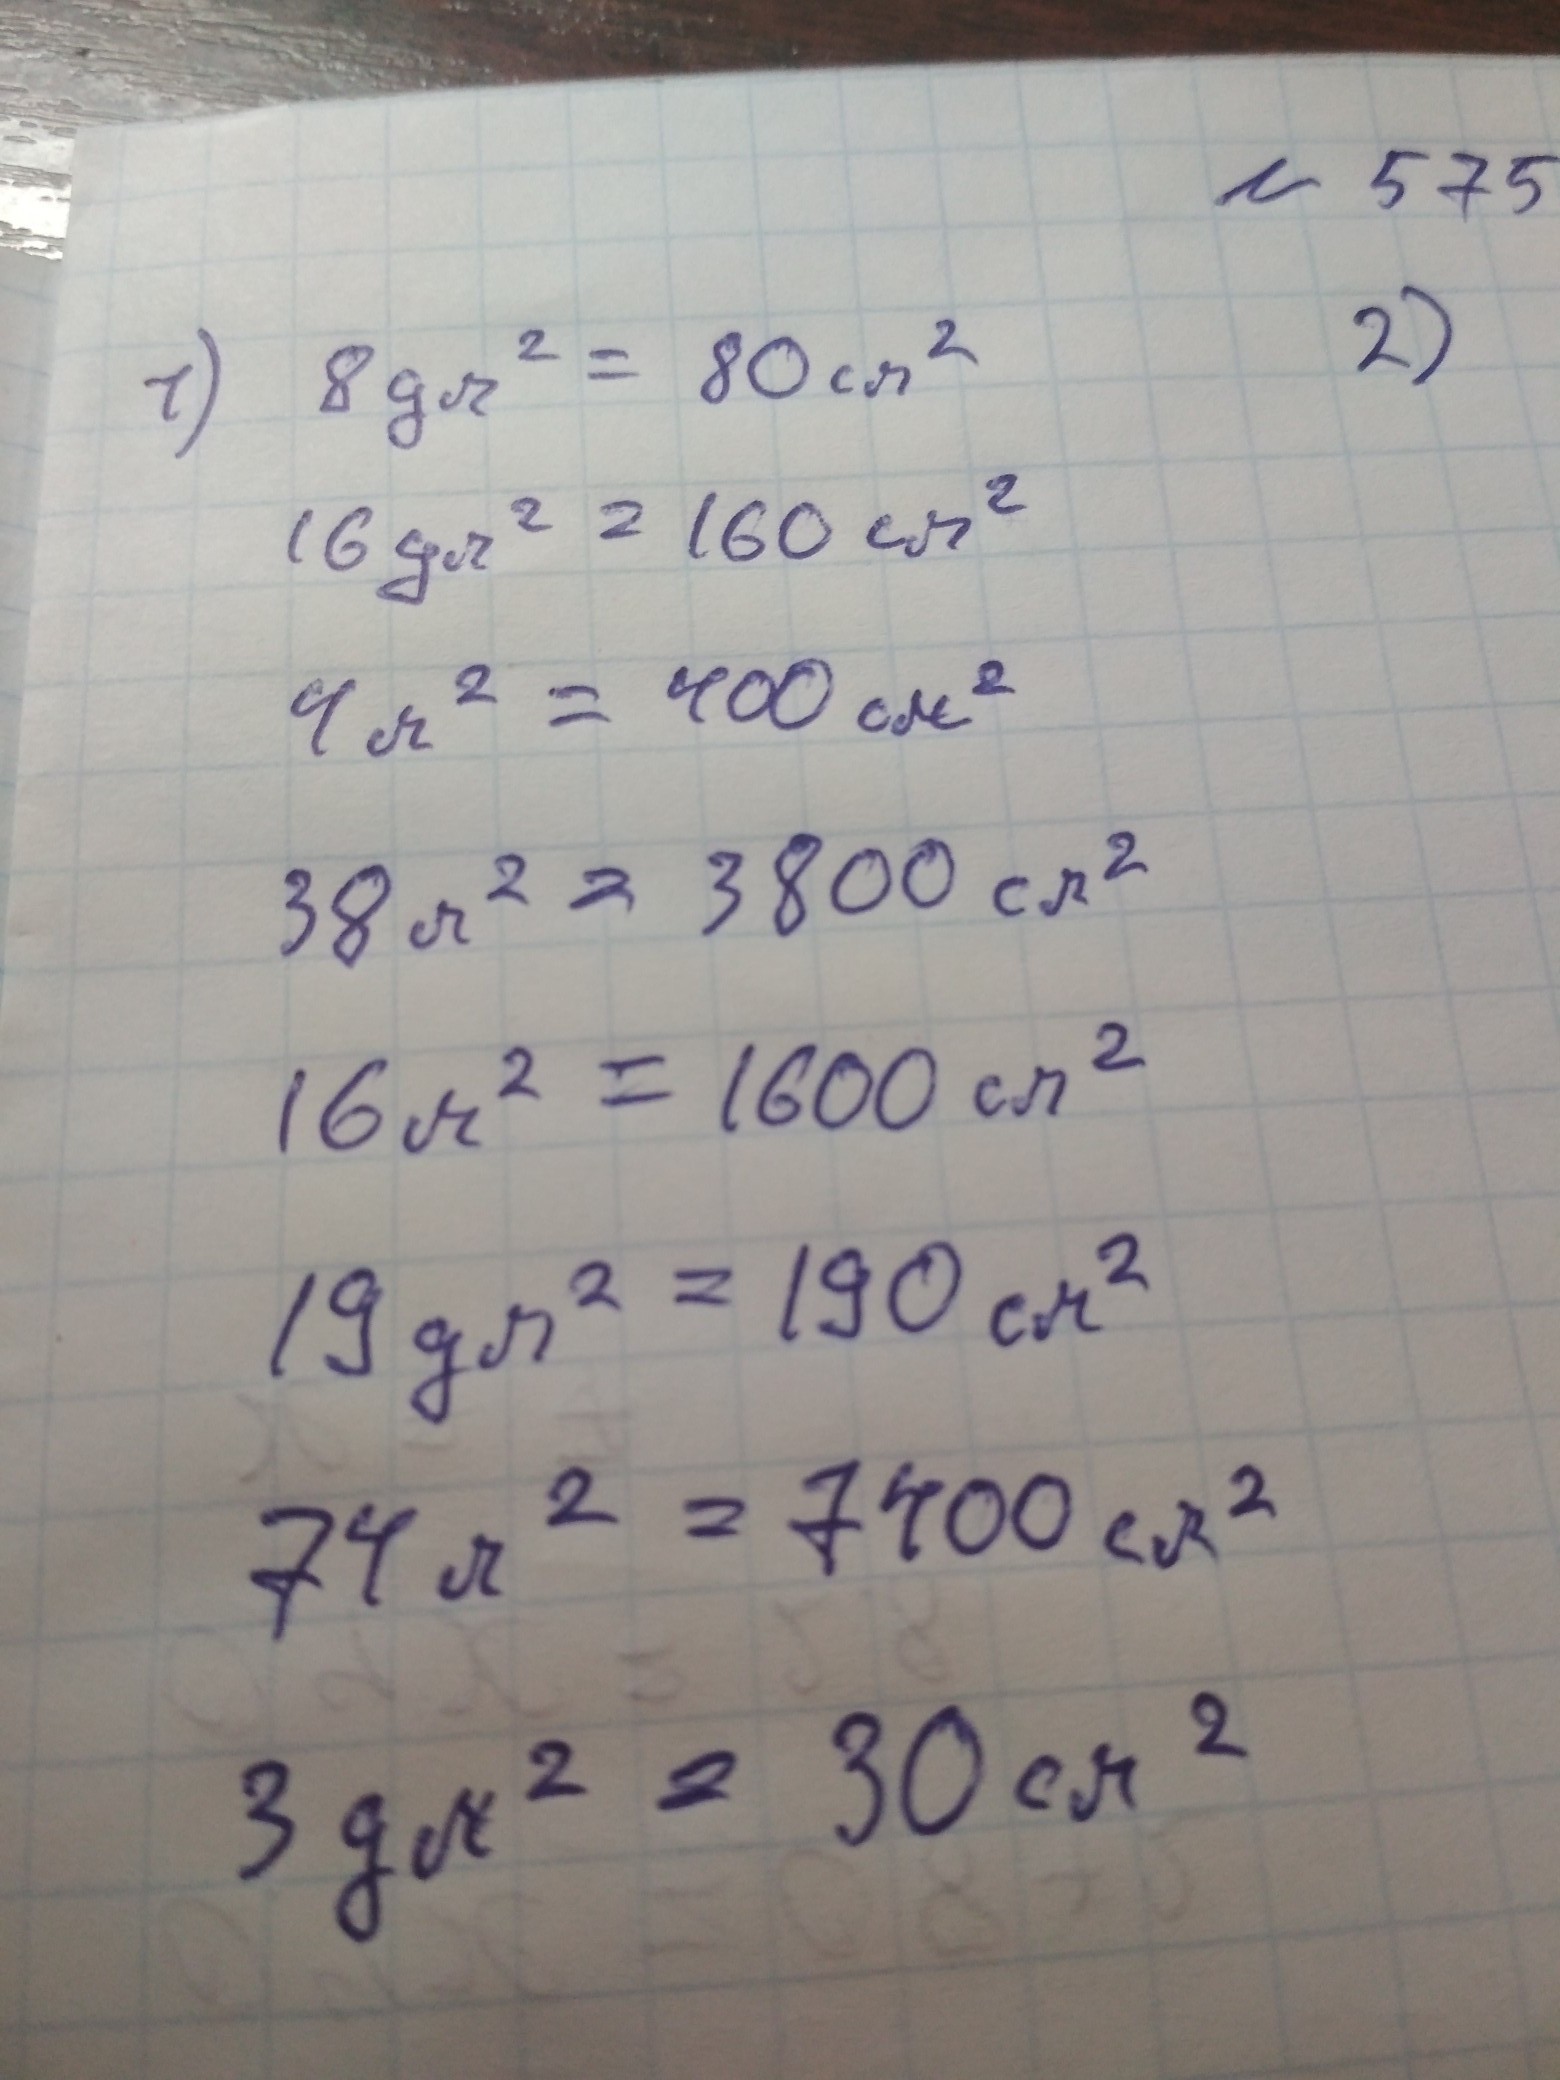 № 575
1) 8 дм² = 80 см²
2)
16 дм² = 160 см²
4 м² = 400 см²
38 м² = 3800 см²
16 м² = 1600 см²
19 дм² = 190 см²
74 м² = 7400 см²
3 дм² = 30 см²